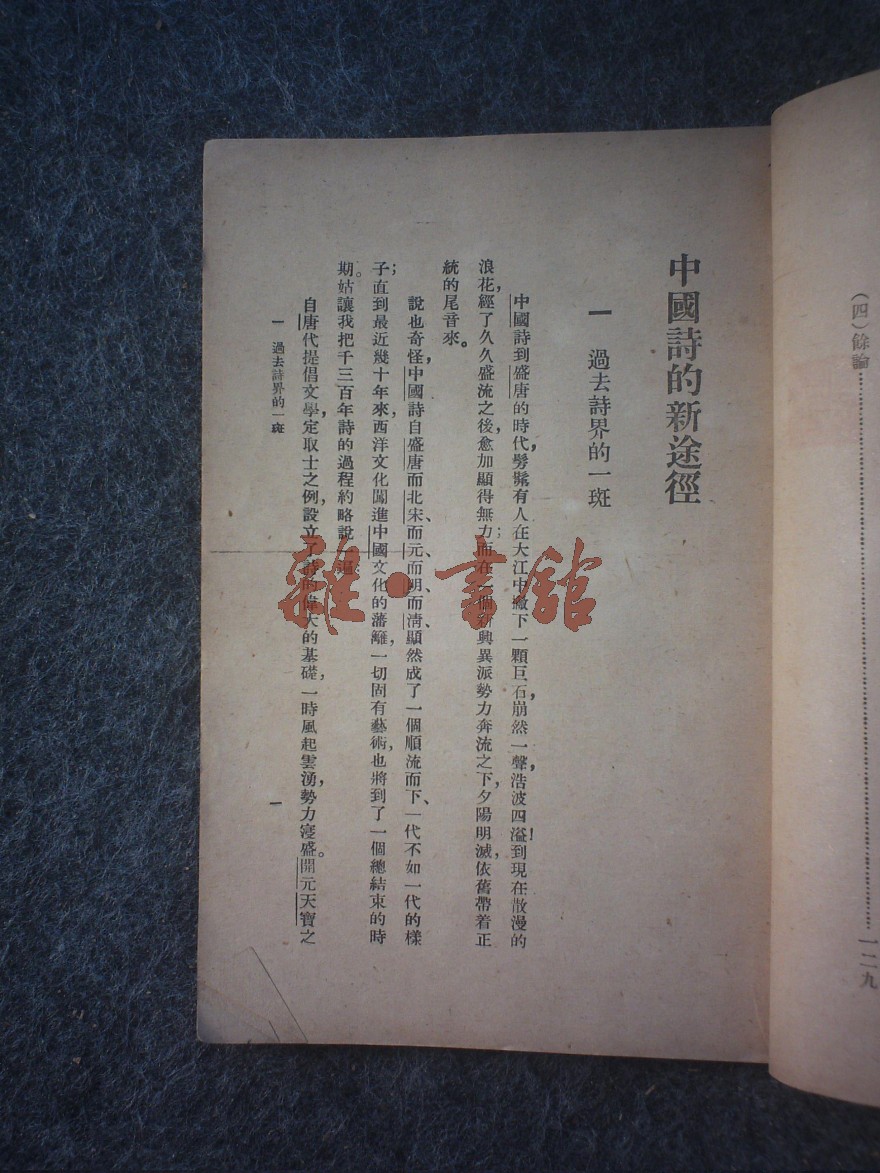 (四)餘論⋯⋯⋯⋯⋯⋯⋯⋯⋯⋯一二九
中國詩的新途徑
一 過去詩界的一斑
中國詩到盛唐的時代,髣髴有人在大江中撇下一顆巨石,崩然一聲,浩波四溢!到現在散漫的
浪花,經了久久盛流之後,愈加顯得無力;而在一個新興異派勢力奔流之下,夕陽明滅,依舊帶着正
統的尾音來。
說也奇怪,中國詩自盛唐而北宋、而元、而明、而清、顯然成了一個順流而下、一代不如一代的樣
子;直到最近幾十年來,西洋文化闖進中國文化的藩籬,一切固有藝術,也將到了一個總結束的時
期。姑讓我把千三百年詩的過程約略說一遍:
自唐代提倡文學,定取士之例,設立了詩的偉大的基礎,一時風起雲湧,勢力寖盛。開元天寶之
一 過去詩界的一斑
一
雜·書舘